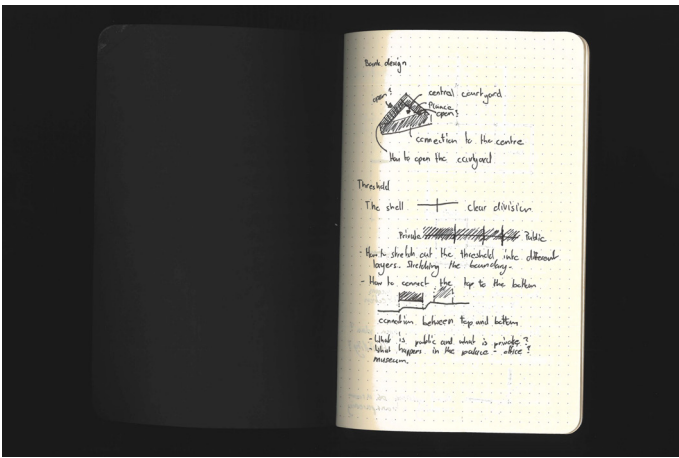 design
open?
central courtyard
open?
connection to the centre
How to open the courtyard
Threshold
The shell clear division
Private Public
- How to stretch out the threshold into different
layers. Stretching the boundary-
- How to connect the top to the bottom
connection between top and bottom
- What is public and what is private?
- What happens in the palace - office?
museum.